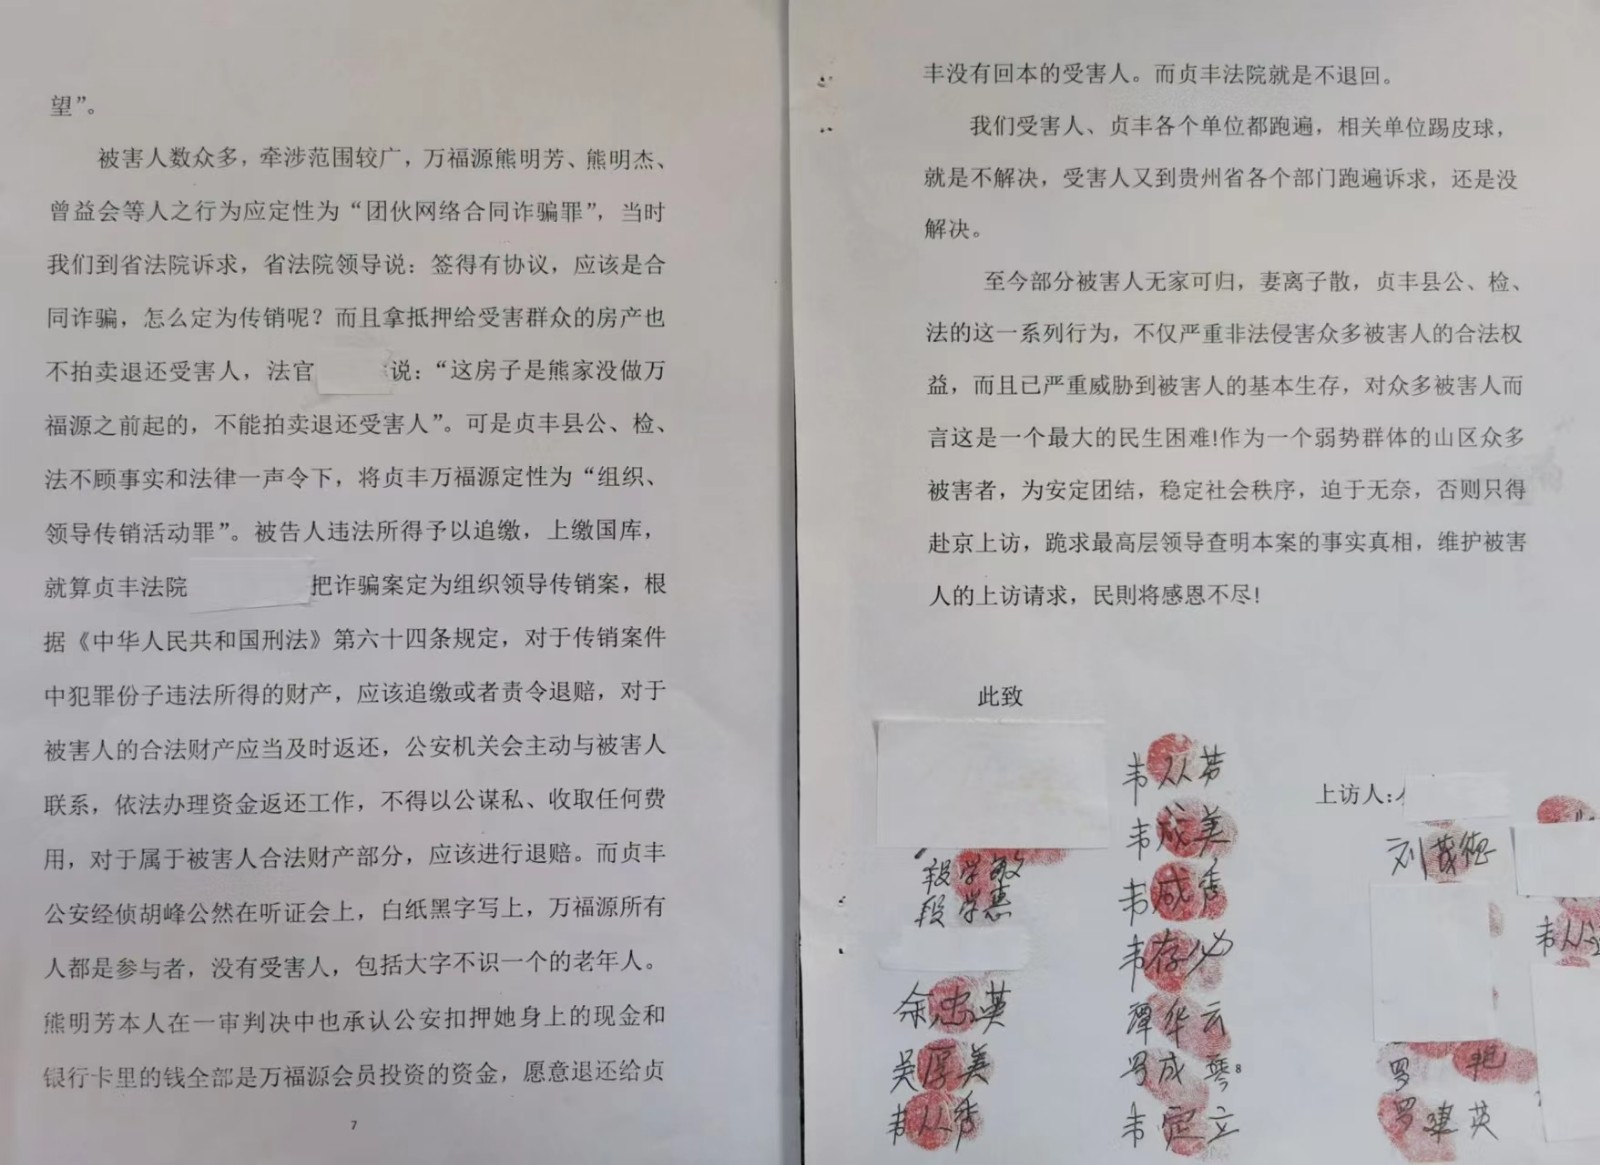 望”。
被害人数众多，牵涉范围较广，万福源熊明芳、熊明杰、
曾益会等人之行为应定性为“团伙网络合同诈骗罪”，当时
我们到省法院诉求，省法院领导说：签得有协议，应该是合
同诈骗，怎么定为传销呢？而且拿抵押给受害群众的房产也
不拍卖退还受害人，法官 说：“这房子是熊家没做万
福源之前起的，不能拍卖退还受害人”。可是贞丰县公、检、
法不顾事实和法律一声令下，将贞丰万福源定性为“组织、
领导传销活动罪”。被告人违法所得予以追缴，上缴国库，
就算贞丰法院 把诈骗案定为组织领导传销案，根
据《中华人民共和国刑法》第六十四条规定，对于传销案件
中犯罪份子违法所得的财产，应该追缴或者责令退赔，对于
被害人的合法财产应当及时返还，公安机关会主动与被害人
联系，依法办理资金返还工作，不得以公谋私、收取任何费
用，对于属于被害人合法财产部分，应该进行退赔。而贞丰
公安经侦胡峰公然在听证会上，白纸黑字写上，万福源所有
人都是参与者，没有受害人，包括大字不识一个的老年人。
熊明芳本人在一审判决中也承认公安扣押她身上的现金和
银行卡里的钱全部是万福源会员投资的资金，愿意退还给贞
7
丰没有回本的受害人。而贞丰法院就是不退回。
我们受害人、贞丰各个单位都跑遍，相关单位踢皮球，
就是不解决，受害人又到贵州省各个部门跑遍诉求，还是没
解决。
至今部分被害人无家可归，妻离子散，贞丰县公、检、
法的这一系列行为，不仅严重非法侵害众多被害人的合法权
益，而且已严重威胁到被害人的基本生存，对众多被害人而
言这是一个最大的民生困难!作为一个弱势群体的山区众多
被害者，为安定团结，稳定社会秩序，迫于无奈，否则只得
赴京上访，跪求最高层领导查明本案的事实真相，维护被害
人的上访请求，民則将感恩不尽!
此致
上访人:
段学敏
段学惠
余忠英
吴厚美
韦从秀
韦从芬
韦成美
韦成秀
韦存必
谭华云
罗成琴
韦定立
8
刘茂德
罗艳
罗建英
韦从